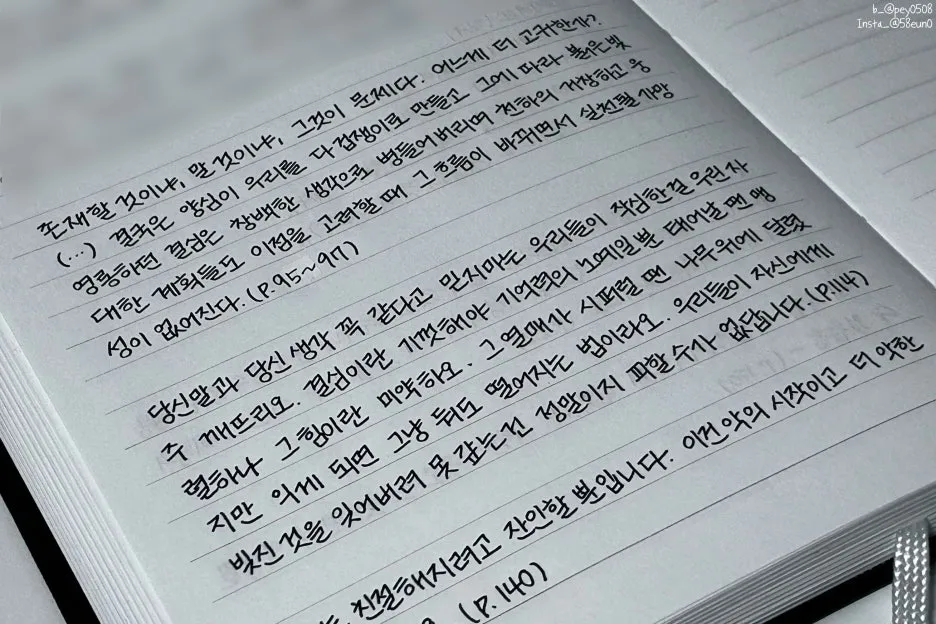 b_@pey0508
Insta_@58eun0
존재할 것이냐, 말 것이냐, 그것이 문제다. 어느게 더 고귀한가?
(...) 결국은 양심이 우리를 다 겁쟁이로 만들고 그에 따라 붉은빛
영롱하던 결심은 창백한 생각으로 병들어버리며 천하의 거창하고 웅
대한 계획들도 이점을 고려할 때 그 흐름이 바뀌면서 실천될 가망
성이 없어진다. (P.95~97)
당신말과 당신 생각 꼭 같다고 믿지마는 우리들이 작심한걸 우린 자
주 깨뜨리오. 결심이란 기껏해야 기억력의 노예일뿐 태어날 땐 맹
렬하나 그 힘이란 미약하오. 그 열매가 시퍼럴 땐 나무위에 달렸
지만 익게 되면 그냥 둬도 떨어지는 법이라오. 우리들이 자신에게
빚진 것을 잊어버려 못 갚는건 정말이지 피할 수가 없답니다. (P.114)
친절해지려고 잔인할 뿐입니다. 이건 악의 시작이고 더 악한
(P.140)